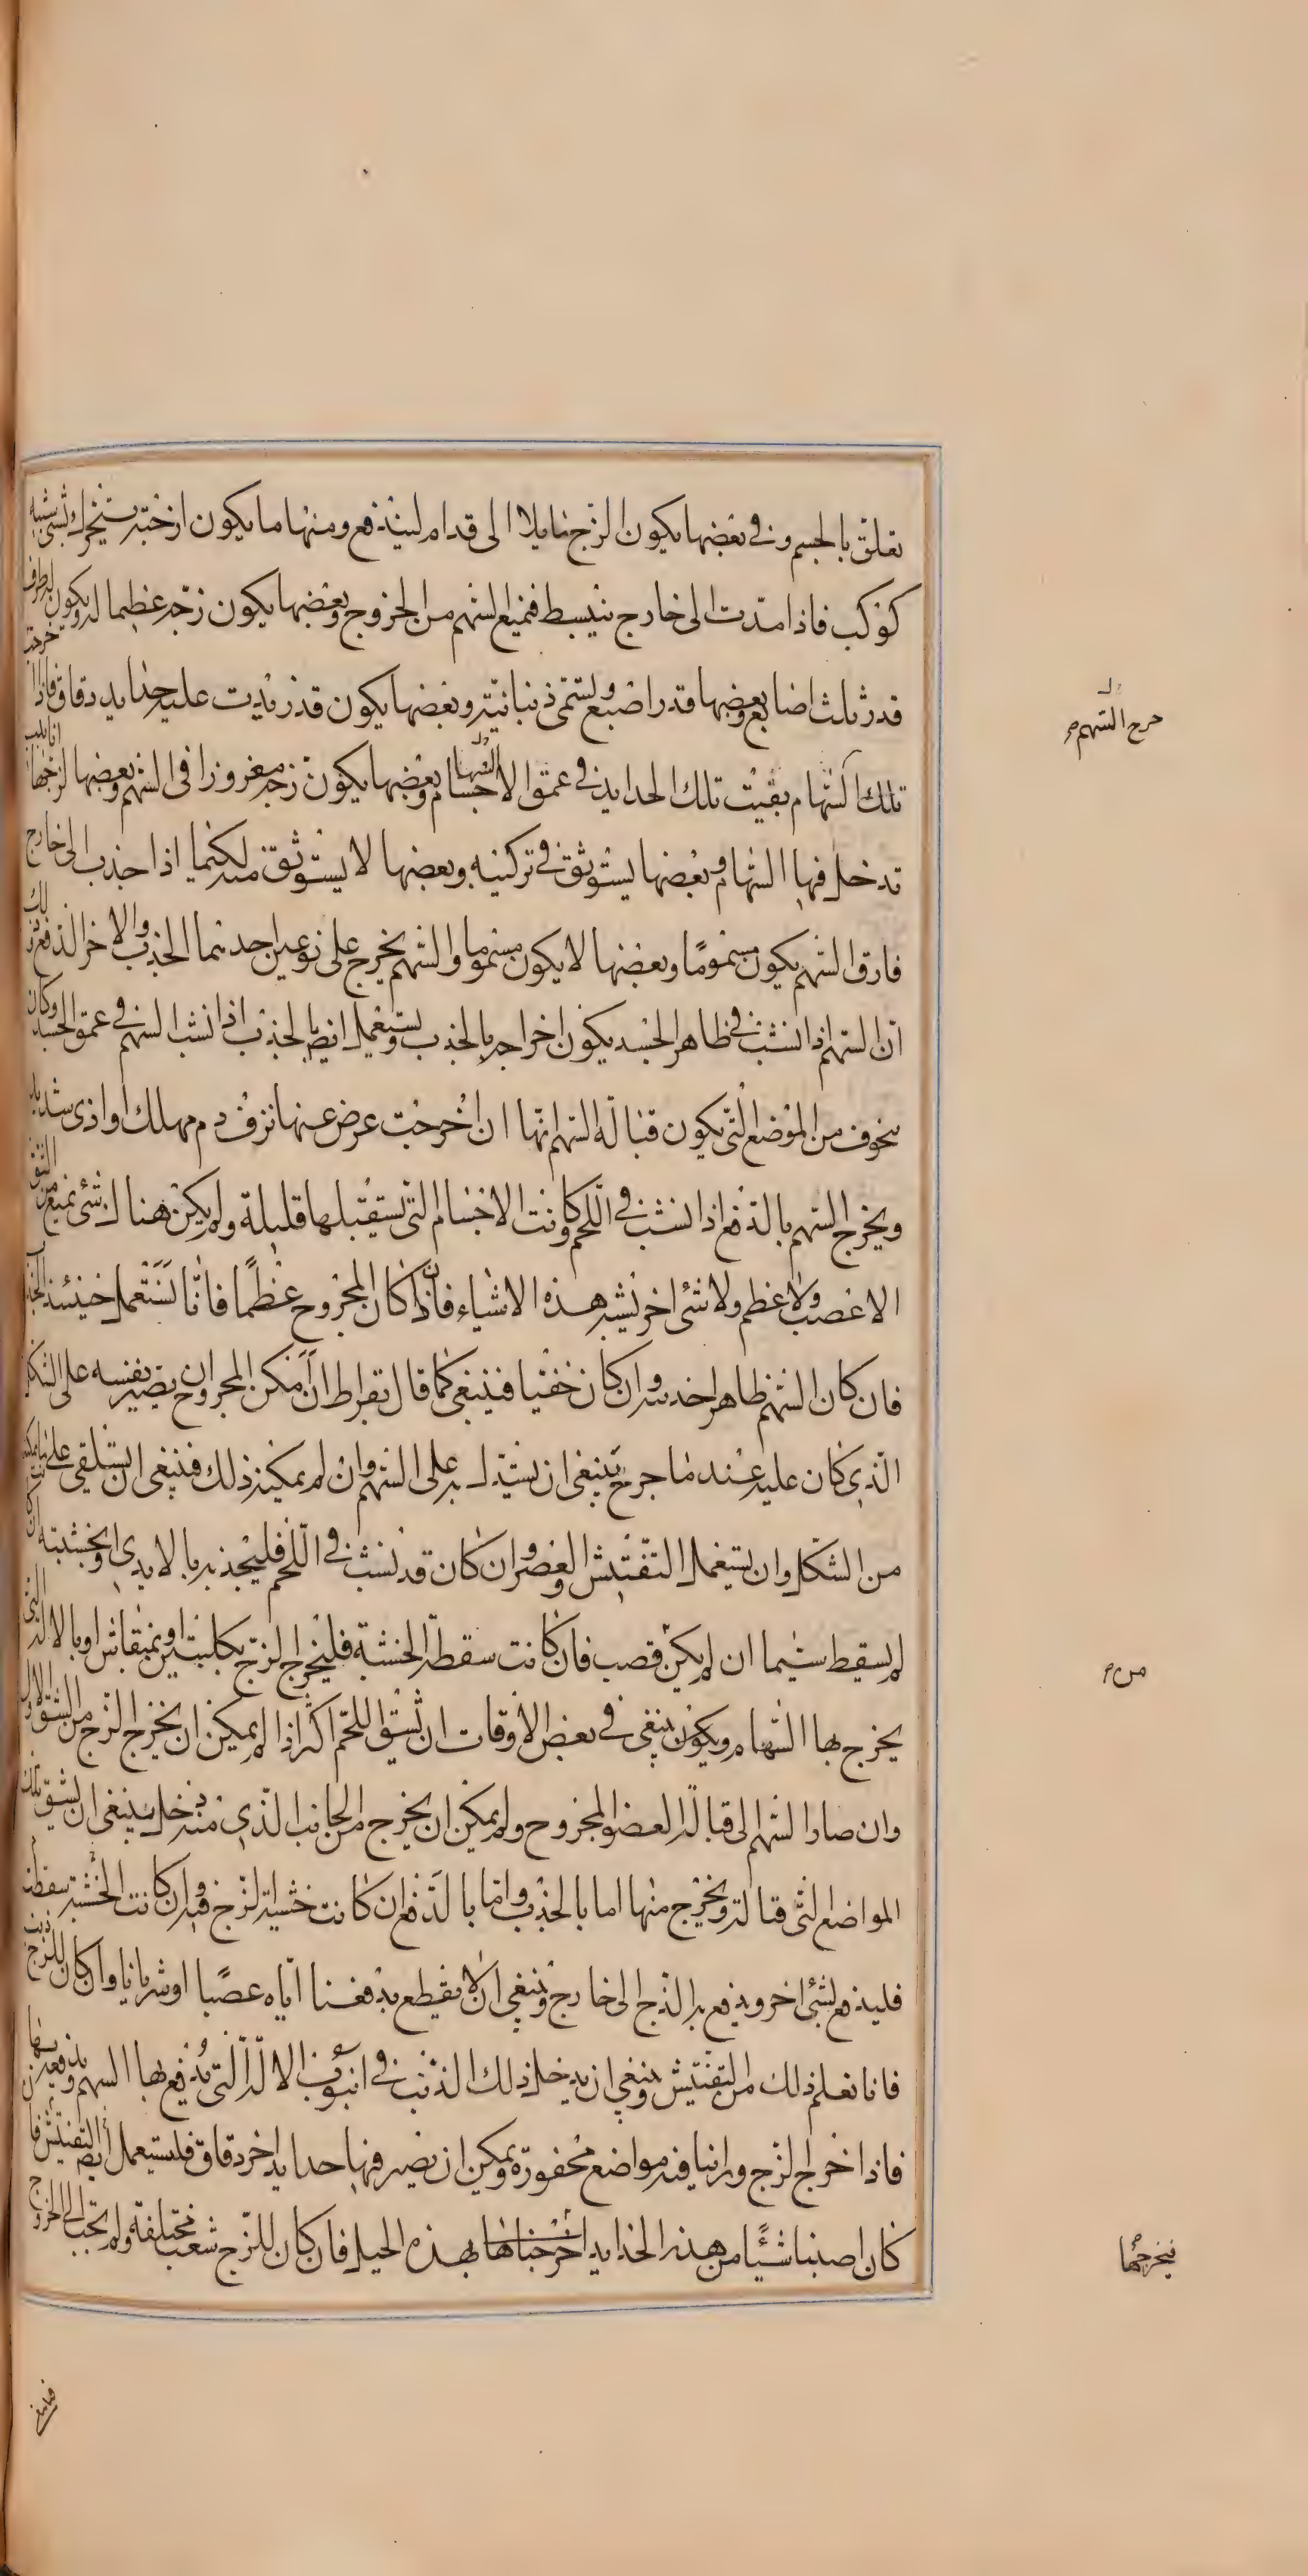 تعلق بالجسم وفى بعضها يكون الزج مايلا الى قدام ليندفع ومنها ما يكون ازخته يتحرك بشئ يشبه
كوكب فاذا مدت الى خارج تنبسط فتمنع السهم من الخروج وبعضها يكون زجه عظيما له ويكون لطرفه
قدر ثلث اصابع وبعضها قدر اصبع ويسمى ذبنانية وبعضها يكون قد زيدت عليه حدايد دقاق فاذا خرجت
تلك السهام بقيت تلك الحدايد فى عمق الاجسام وبعضها يكون زجه مغروزا فى السهم وبعضها لزجها انابيب
تدخل فيها السهام وبعضها يستوثق فى تركيبه وبعضها لا يستوثق منه لكيما اذا جذب الى خارج
فارق السهم يكون مسموما وبعضها لا يكون مسموما والسهم يخرج على نوعين احدهما الجذب والاخر الدفع وذلك
ان السهم اذا نشب فى ظاهر الجسد يكون اخراجه بالجذب ويستعمل ايضا الجذب اذا نشب السهم فى عمق الجسد وكان
يتخوف من المواضع التى يكون قبالة السهم انها ان اخرجت عرض عنها نزف دم مهلك او اذى شديد
ويخرج السهم بالدفع اذا نشب فى اللحم وكانت الاجسام التى تستقبلها قليلة ولم يكن هناك شئ يمنع من الشق
الا عصب ولا عظم ولا شئ اخر يشبه هذه الاشياء فان كان المجروح عظما فانا نستعمل حينئذ الجذب
فان كان السهم ظاهرا جذبناه وان كان خفيا فينبغى كما قال بقراط ان امكن المجروح ان يصير نفسه على الشكل
الذى كان عليه عند ما جرح فينبغى ان يستدل به على السهم وان لم يمكنه ذلك فينبغى ان يستلقى على ما يمكنه
من الشكل وان يستعمل التفتيش والعصر وان كان قد نشب فى اللحم فليجذب بالايدى او بخشبته ان كان
لم يسقط سيما ان لم يكن قصب فان كانت سقطة الخشبة فليخرج الزج بكلبتين او بمنقاش او بالالة التى
يخرج بها السهام ويكون ينبغى فى بعض الاوقات ان تشق اللحم اكثر اذا لم يمكن ان يخرج الزج من الشق الاول
وان صار السهم الى قبالة العضو المجروح ولم يمكن ان يخرج من الجانب الذى منه دخل فينبغى ان يشق تلك
المواضع التى قبالته ويخرج منها اما بالجذب واما بالدفع ان كانت خشبة الزج فيه وان كانت الخشبة سقطت
فليدفع بشئ اخر ويدفع به الزج الى خارج وينبغى ان لا نقطع بدفعنا اياه عصبا او شريانا وان كان للزج ذنب
فانا نعلم ذلك من التفتيش وينبغى ان يدخل ذلك الذنب فى انبوب الالة التى يدفع بها السهم وندفعه بها
فاذا خرج الزج وراينا فيه مواضع محفورة ويمكن ان تصير فيها حدايد اخر دقاق فلنستعمل ايضا التفتيش فان
كان اصبنا شيئا من هذه الحدايد اخرجناها بهذه الحيل فان كان للزج شعب مختلفة ولم تجب الى الخروج
خرج السهم
من
فيخرجها